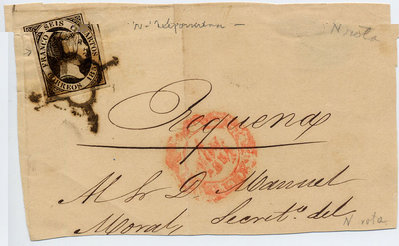 FRANCO SEIS CUARTOS
CORREOS 1851
N rota
Requena
M Sr D. Manuel
Moral, Secret.º del
N rota